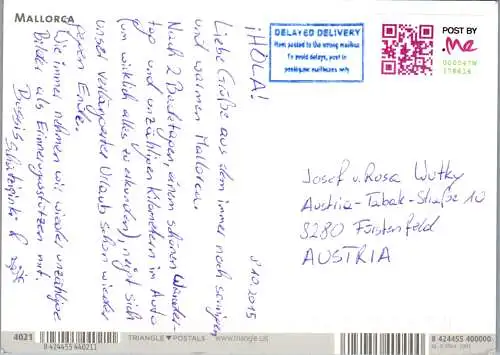 MALLORCA
DELAYED DELIVERY
Item posted to the wrong mailbox
To avoid delays, post in
postbyme mailboxes only
POST BY
.me
000047W
178614
¡HOLA!
8'10.2015
Liebe Grüße aus dem immer noch sonnigen
und warmen Mallorca.
Nach 2 Badetagen, einem schönen Wander-
tag und unzähligen Kilometern im Auto
(um wirklich alles zu erkunden), neigt sich
unser verlängerter Urlaub schon wieder
gegen Ende.
Wie immer nehmen wir wieder unzählige
Bilder als Erinnerungsstützen mit.
Bussis
Josef u. Rosa Wutky
Austria-Tabak-Straße 10
8280 Fürstenfeld
AUSTRIA
4021
8 424455 440211
TRIANGLE POSTALS - www.triangle.us
8 424455 400000